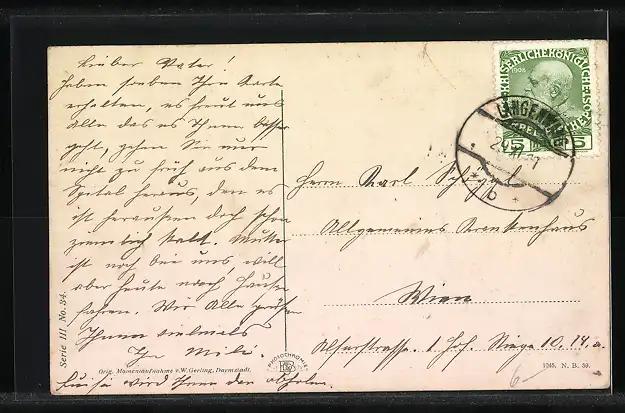 Lieber Vater!
haben soeben Ihre Karte
erhalten, es freut uns
Alle das es Ihnen besser
geht, gehen Sie nur
nicht zu früh aus dem
Spital heraus, den es
ist heraussen doch schon
ziemlich kalt. Mutter
ist noch bei uns, will
aber heute nach Hause
fahren. Wir Alle grüßen
Ihnen vielmals
Ihr
sie wird Ihnen dan abholen.
Serie III No. 34.
Orig. Momentaufnahme v. W. Gerling, Darmstadt.
PHOTOCHROMIE
KAISERLICHE KÖNIGLICHE
1908
5 5
LANGENZ
b
Herrn Karl
Allgemeines Krankenhaus
Wien
Alserstrasse. 1. Hof. 10. 14. a.
6-
1245. N. B. 39.